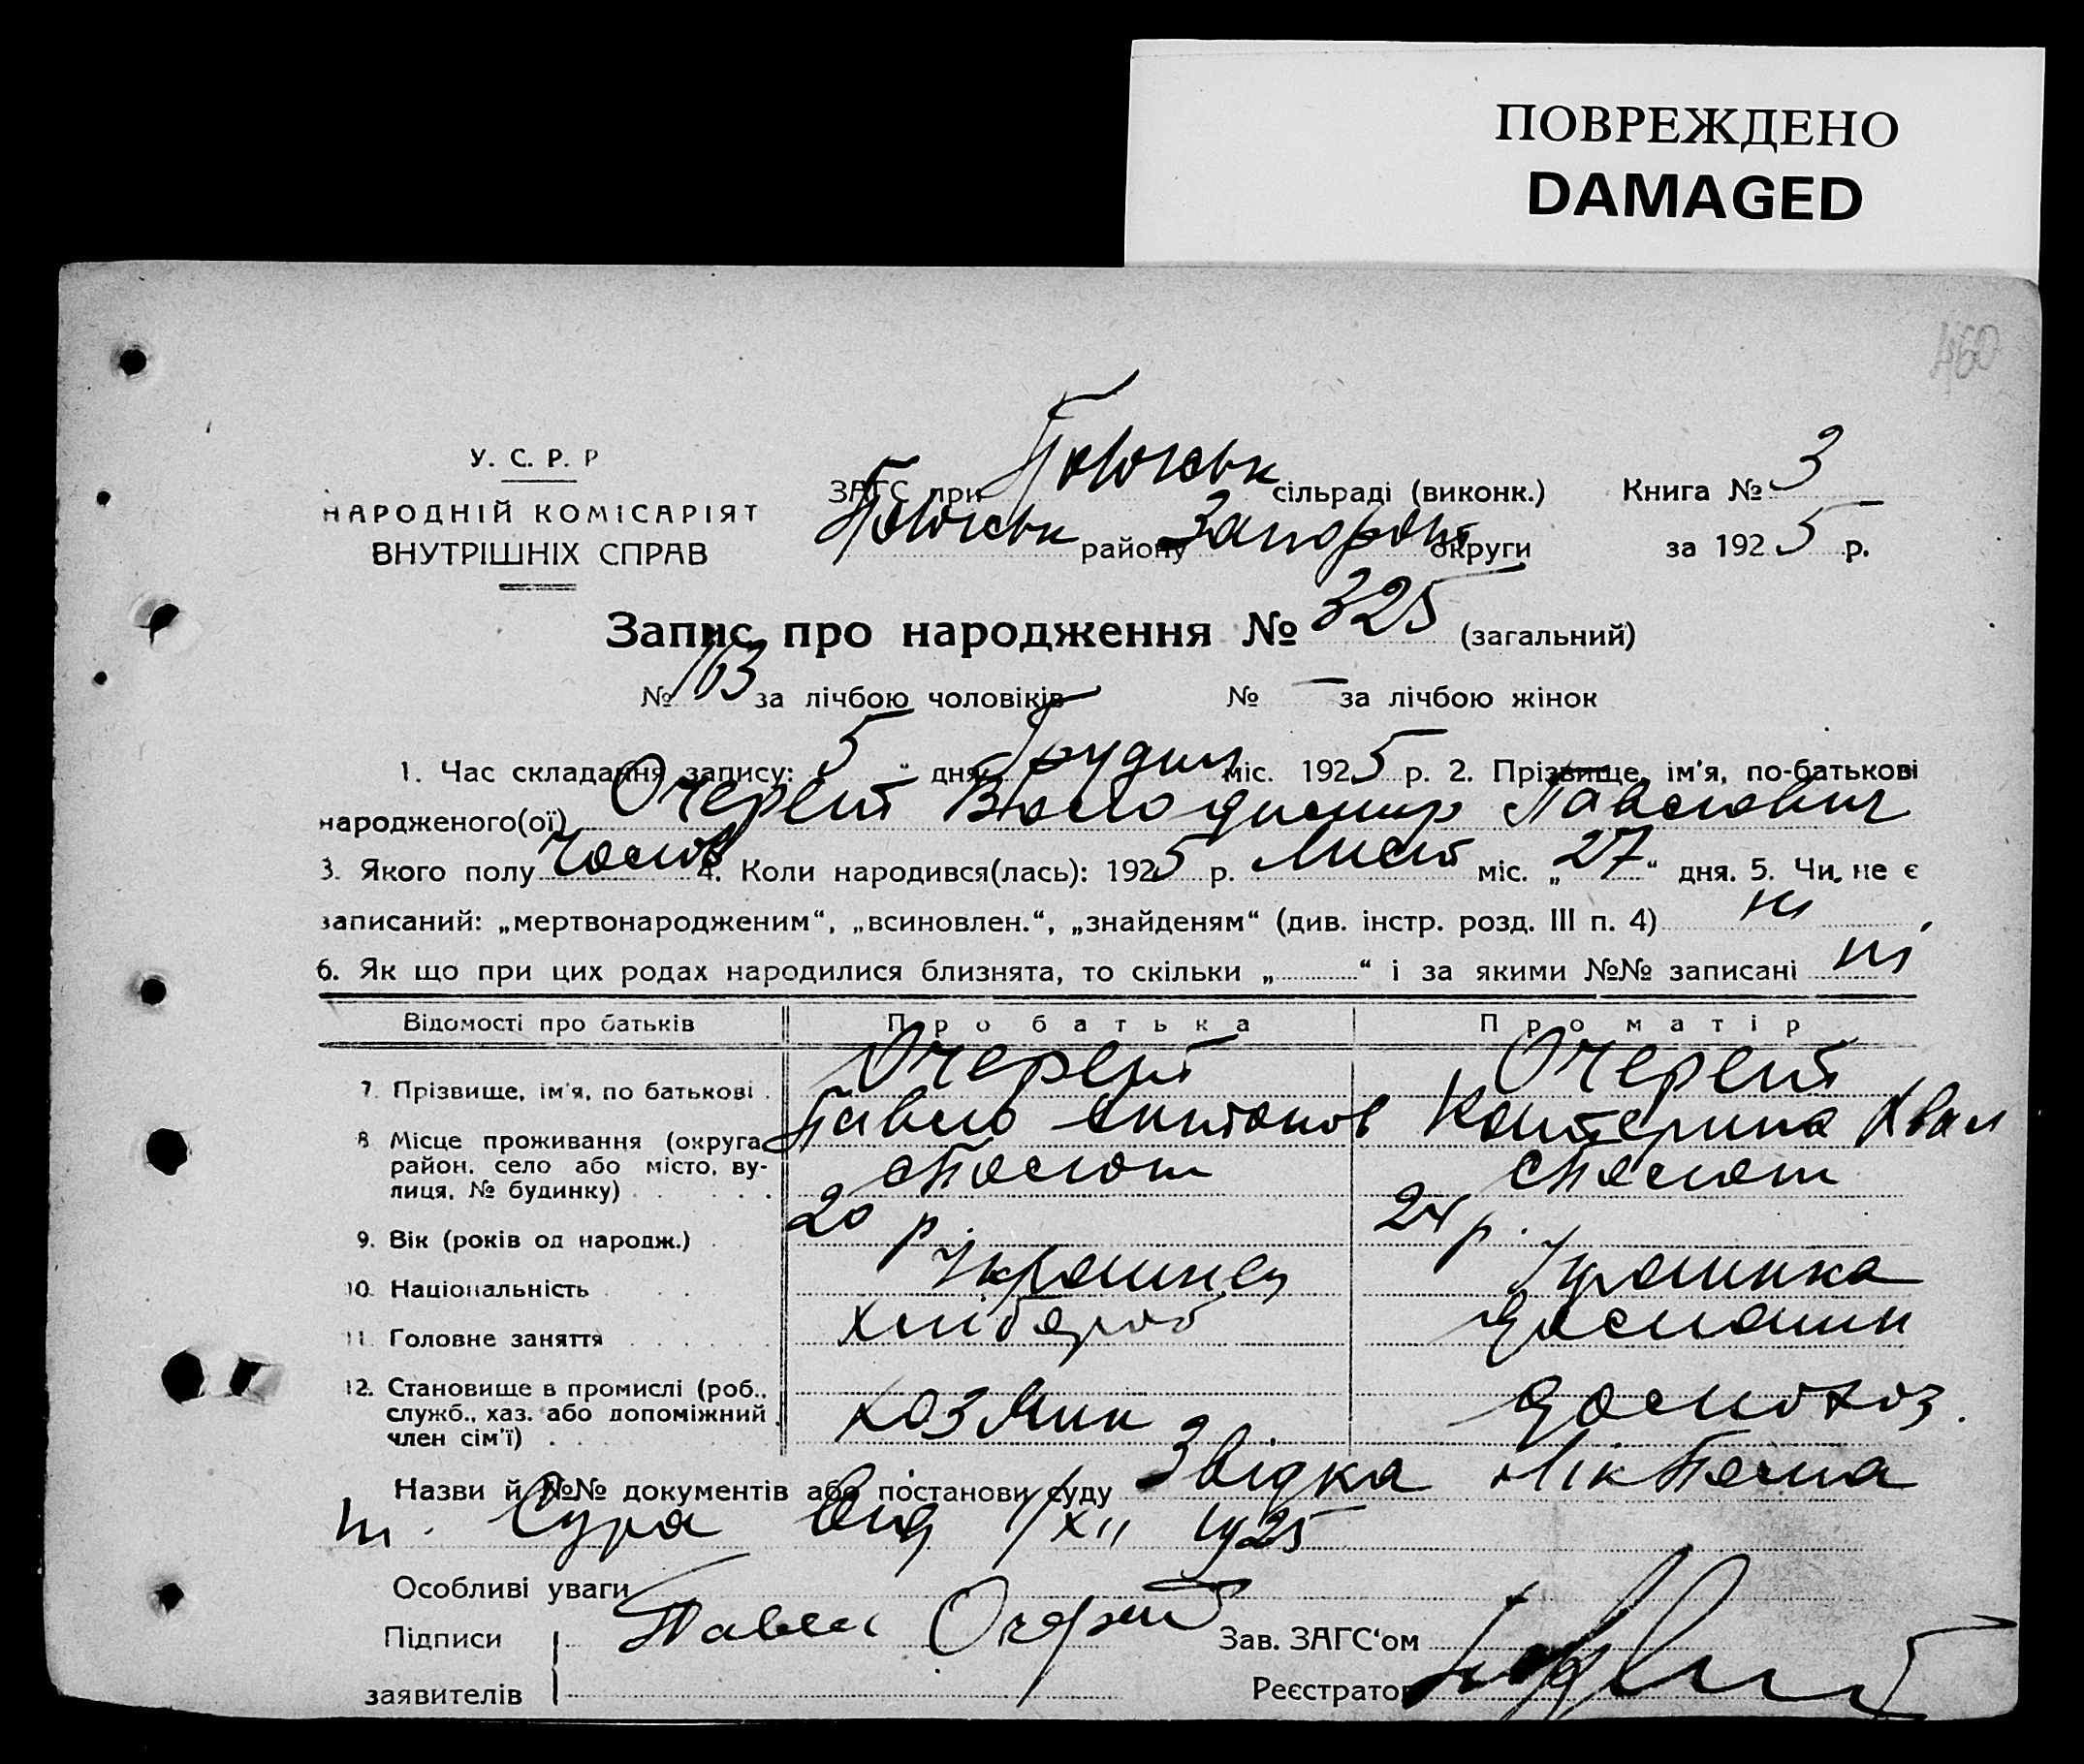 ПОВРЕЖДЕНО
DAMAGED
460
У. С. Р. Р
НАРОДНІЙ КОМІСАРІЯТ
ВНУТРІШНІХ СПРАВ
ЗАГС при Пологськ сільраді (виконк.) Книга № 3
Пологськ району Запоріж округи за 1925 р.
Запис про народження № 325 (загальний)
№ 163 за лічбою чоловіків № — за лічбою жінок
1. Час складання запису: 5 " дня Грудня міс. 1925 р. 2. Прізвище, ім'я, по-батькові
народженого(ої) Очерет Володимир Павлович
3. Якого полу чолов 4. Коли народився(лась): 1925 р. Лист міс. „27" дня. 5. Чи не є
записаний: „мертвонародженим", „всиновлен.", „знайденям" (див. інстр. розд. III п. 4) ні
6. Як що при цих родах народилися близнята, то скільки „ " і за якими №№ записані ні
Відомості про батьків Про батька Про матір
7. Прізвище, ім'я, по батькові Очерет Очерет
Павло Антонов Катерина Хвал
8 Місце проживання (округа, район, село або місто, вулиця, № будинку)
9. Вік (років од народж.) 20 р. 24 р.
10. Національність Українец Українка
11. Головне заняття хлібороб
12. Становище в промислі (роб., служб., хаз. або допоміжний член сім'ї)
Назви й №№ документів або постанови суду
від 1/XII 1925
Особливі уваги
Підписи Павел Очерет Зав. ЗАГС'ом
заявителів Реєстратор